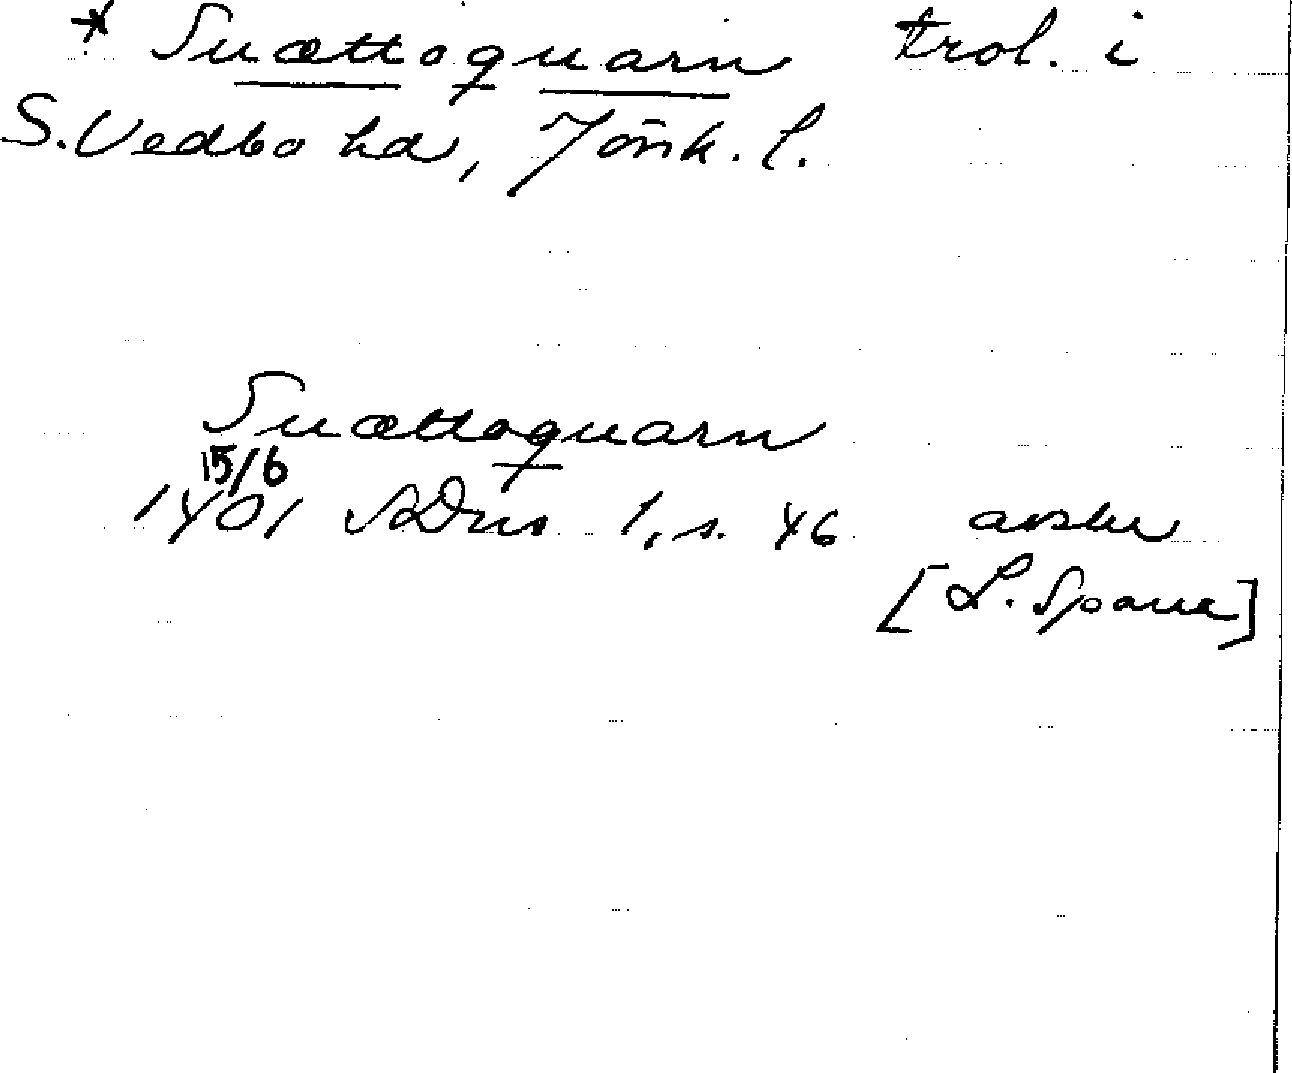 * Suættoquarn trol. i
S. Vedbo hd, Jönk. l.
Suættoquarn
15/6
1401 SDns 1, s. 46 avskr
[L. Sparre]